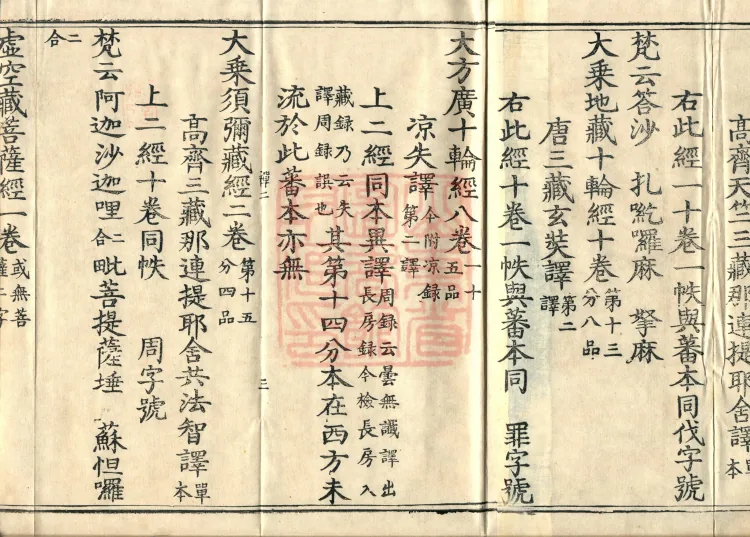 髙齊天竺三藏那連提耶舍譯單本
右此經一十卷一帙與蕃本同伐字號
梵云答沙 扎囉麻 拏麻
大乘地藏十輪經十卷第十三分八品
唐三藏玄奘譯第二譯
右此經十卷一帙與蕃本同 罪字號
大方廣十輪經八卷一十五品
凉失譯今附凉録第二譯
上二經同本異譯周録云曇無讖譯出長房録今檢長房入
藏録乃云失譯周録誤也其第十四分本在西方未
流於此蕃本亦無
禪二 三
大乘須彌藏經二卷第十五分四品
髙齊三藏那連提耶舍共法智譯單本
上二經十卷同帙 周字號
梵云阿迦沙迦哩二合毗菩提薩埵 蘇怛囉
二合
虛空藏菩薩經一卷或無菩薩二字